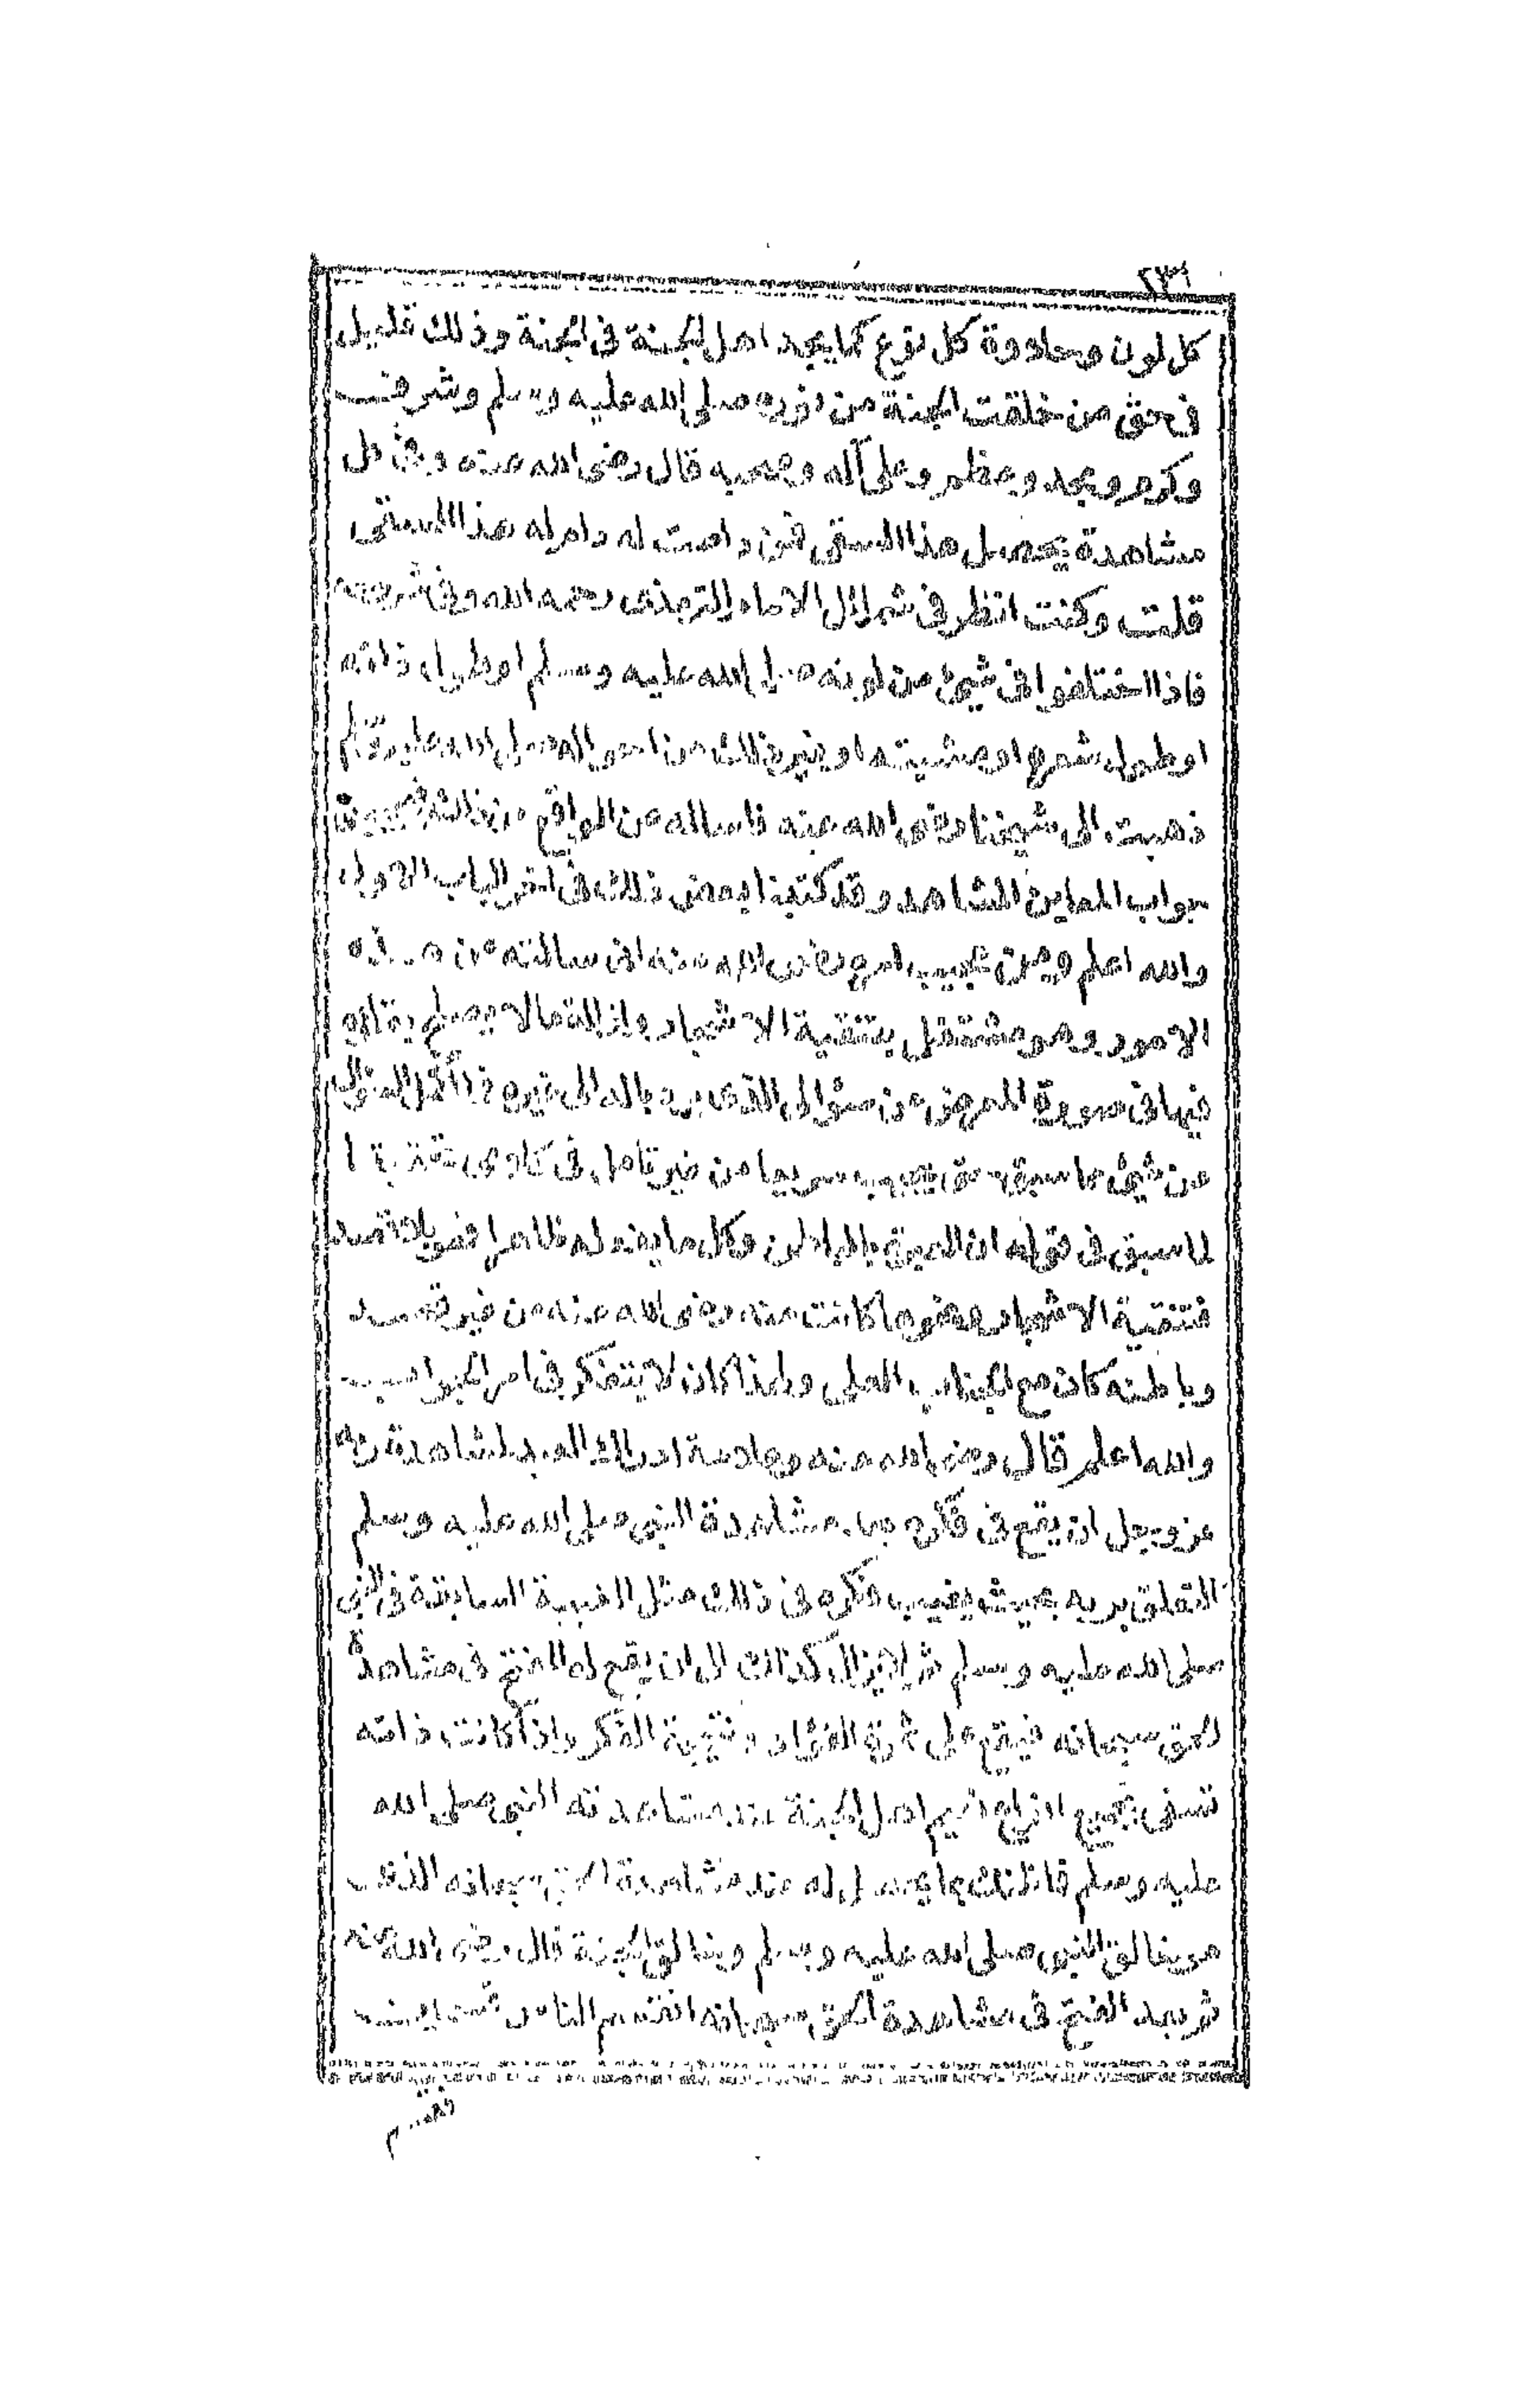 كل لون وحلاوة كل نوع كما يجد اهل الجنة فى الجنة وذلك قليل
فى حق من خلقت الجنة من نوره صلى الله عليه وسلم وشرف
وكرم ومجد وعظم وعلى آله وصحبه قال رضى الله عنه وفى كل
مشاهدة يحصل هذا السقى فمن دامت له دام له هذا السقى
قلت وكنت انظر فى شمائل الامام الترمذى رحمه الله وفى شروحه
فاذا اختلفوا فى شيئ من لونه صلى الله عليه وسلم او طول ذاته
او طول شعره او مشيته او غير ذلك من احواله صلى الله عليه وسلم
ذهبت الى شيخنا رضى الله عنه فاساله عن الواقع من ذلك فيجيبنى
جواب المعاين المشاهد وقد كتبنا بعض ذلك فى اخر الباب الاول
والله اعلم ومن عجيب امره رضى الله عنه انى سالته عن هذه
الامور وهو مشتغل بتنقية الاشجار وازالة ما لا يصلح بقاؤه
فيها فى صورة المعرض عن سؤالى الذى يرد باله الى غيره فلما اكمل السؤال
عن شيئ مما سبق حتى يجيب سريعا من غير تامل فى
لما سبق فى قوله ان العبرة بالباطن وكل ما يفعله ظاهرا فهو بلا قصد
فتنقية الاشجار ونحوها كانت منه رضى الله عنه من غير قصد
وباطنه كان مع الجناب العلى ولهذا كان لا يتفكر فى امر الجواب
والله اعلم قال رضى الله عنه وعلامة ادراك العبد لمشاهدة ربه
عز وجل ان يقع فى فكره بعد مشاهدة النبى صلى الله عليه وسلم
التعلق بربه بحيث يغيب فكره فى ذلك مثل الغيبة السابقة فى النبى
صلى الله عليه وسلم ثم لا يزال كذلك الى ان يقع له الفتح فى مشاهدة
الحق سبحانه فيقع على ثمرة الفؤاد ونتيجة الفكر واذا كانت ذاته
تسقى بجميع انواع نعيم اهل الجنة عند مشاهدته النبى صلى الله
عليه وسلم فما ظنك بما يحصل له عند مشاهدة الحق سبحانه الذى
هو خالق النبى صلى الله عليه وسلم وخالق الجنة قال رضى الله عنه
ثم بعد الفتح فى مشاهدة الحق سبحانه انقسم الناس